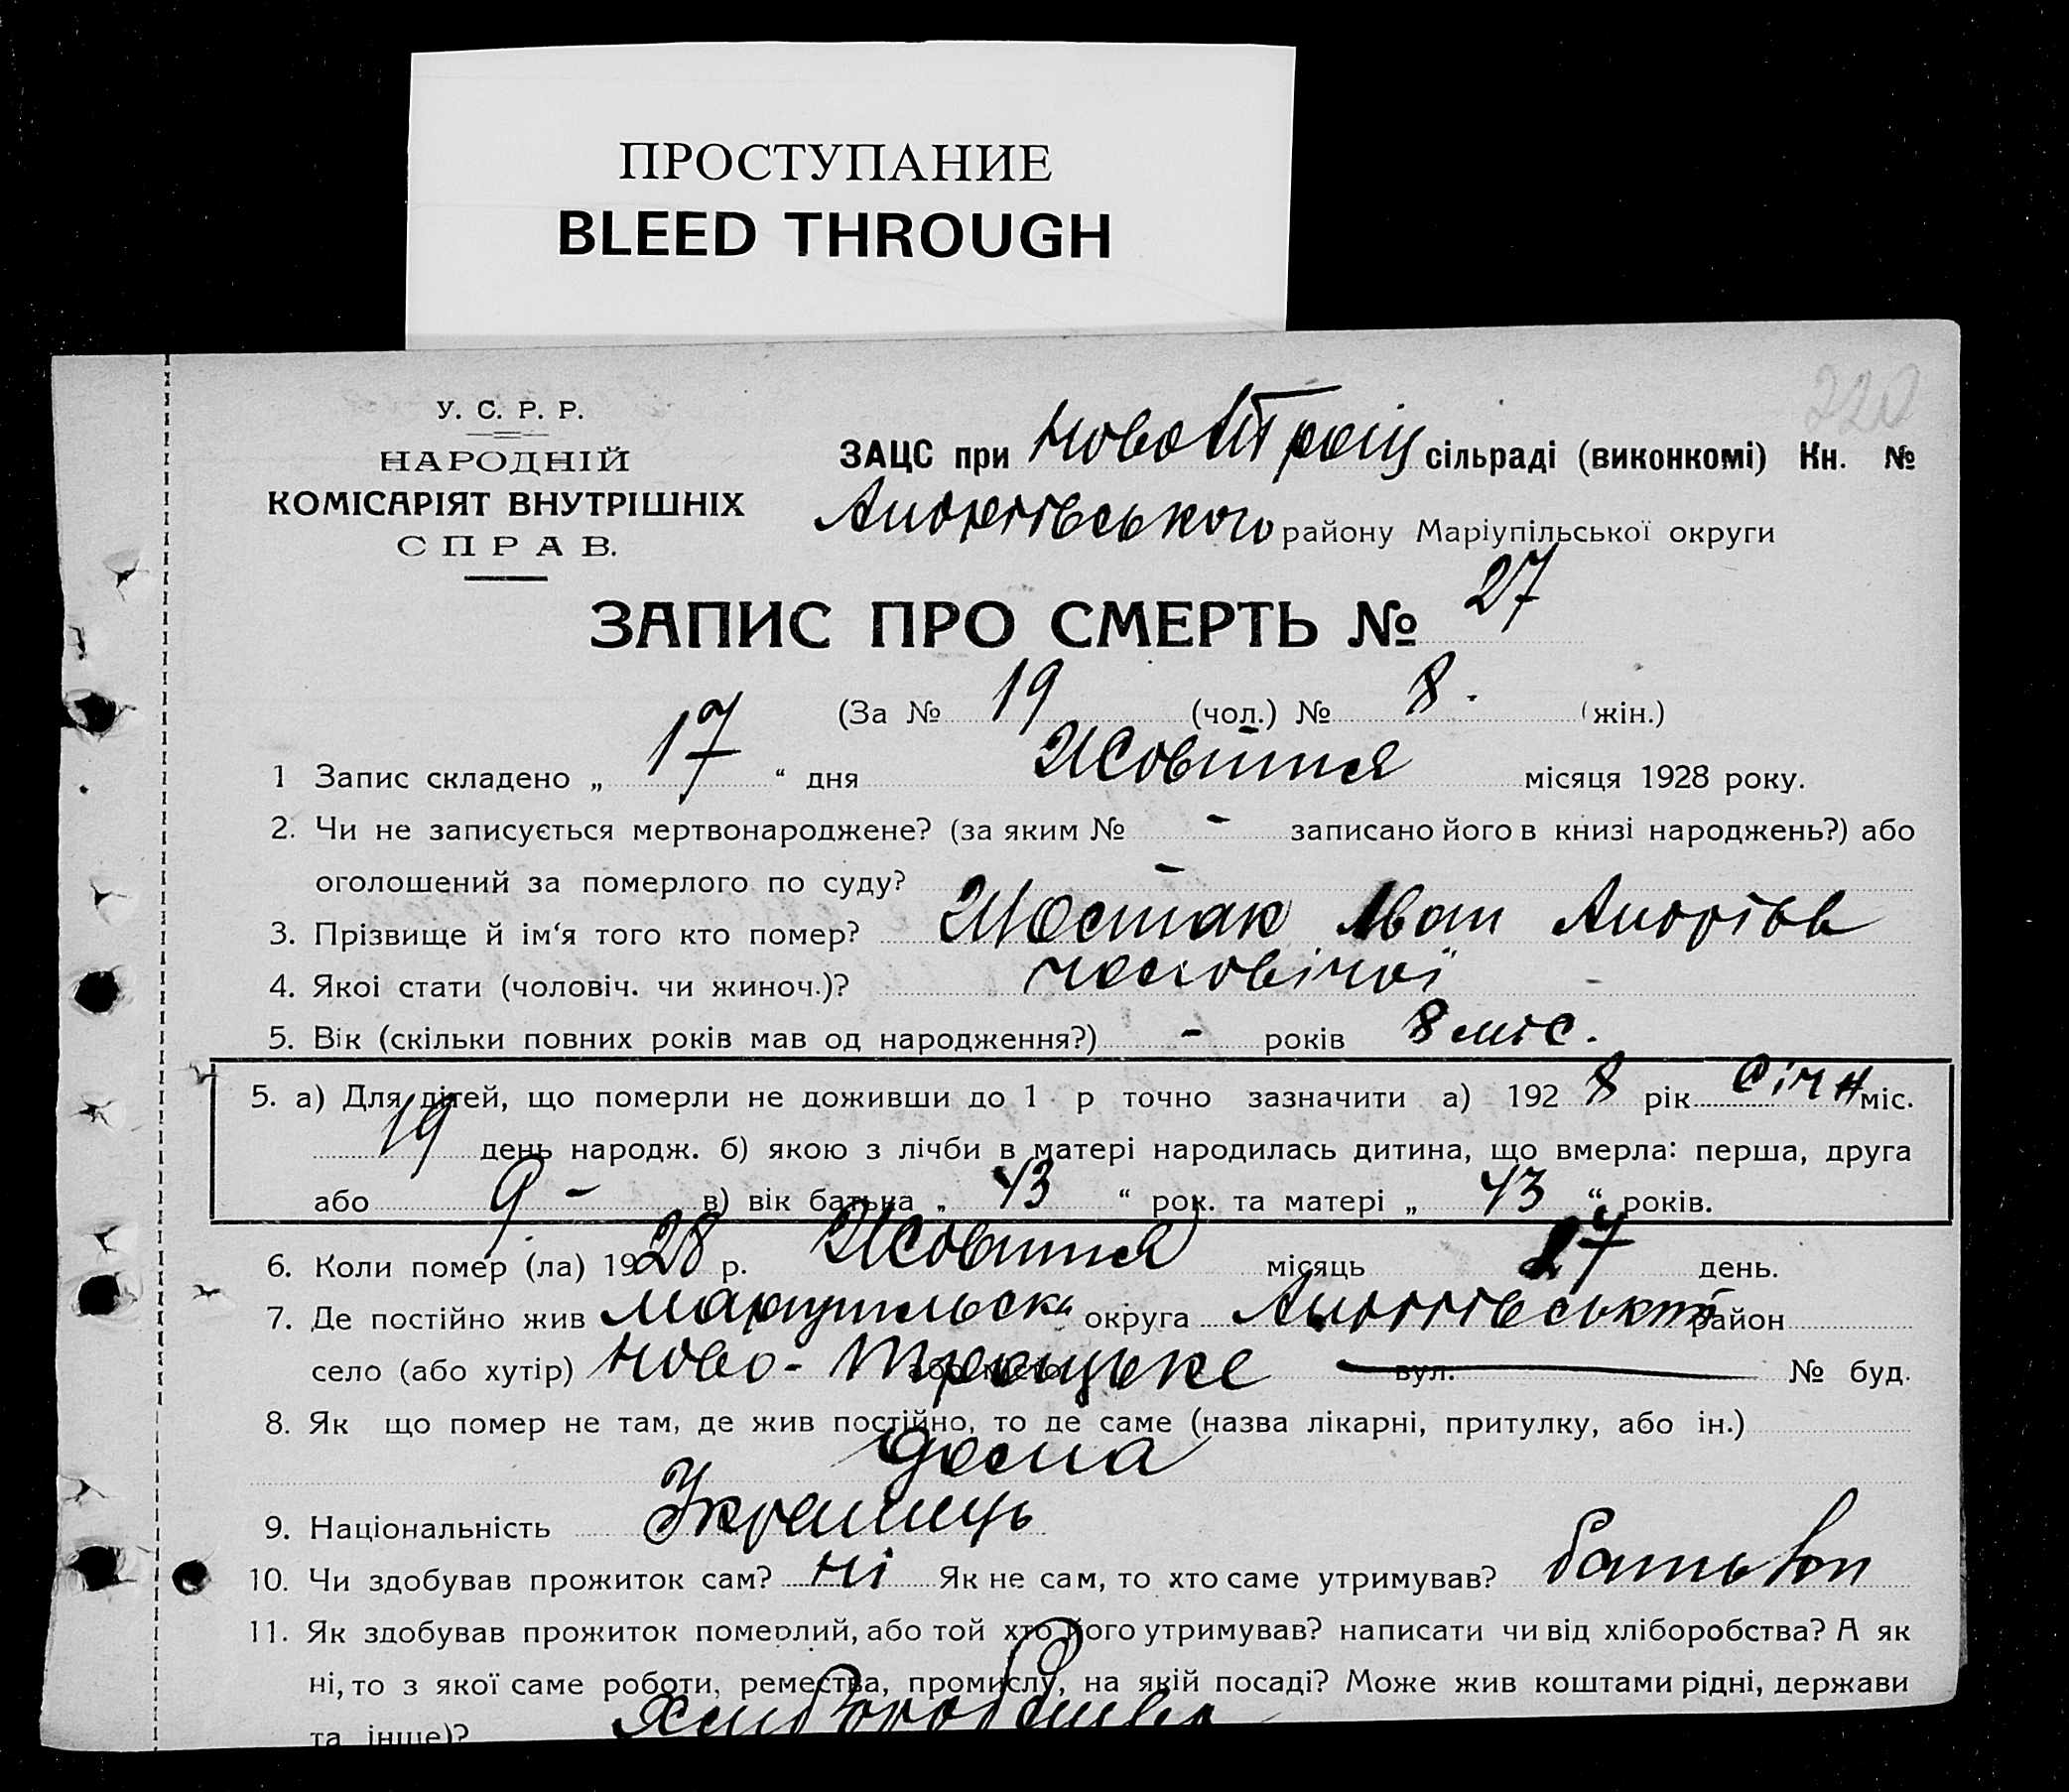 ПРОСТУПАНИЕ
BLEED THROUGH
220
У. С. Р. Р.
НАРОДНІЙ
КОМІСАРІЯТ ВНУТРІШНІХ
СПРАВ.
ЗАЦС при Ново Троіц сільраді (виконкомі) Кн. №
Андріївського району Маріупільської округи
ЗАПИС ПРО СМЕРТЬ № 27
(За № 19 (чол.) № 8. (жін.)
1 Запис складено „ 17 “ дня Жовтня місяця 1928 року.
2. Чи не записується мертвонароджене? (за яким № - записано його в книзі народжень?) або
оголошений за померлого по суду? -
3. Прізвище й ім‘я того кто помер? Шостак Іван Андрієв
4. Якоі стати (чоловіч. чи жиноч.)? чоловічої
5. Вік (скільки повних років мав од народження?) - років 8 міс.
5. а) Для дітей, що померли не доживши до 1 р точно зазначити а) 1928 рік Січн міс.
19 день народж. б) якою з лічби в матері народилась дитина, що вмерла: перша, друга
або 9 - в) вік батька „ 43 “ рок. та матері „ 43 “ років.
6. Коли помер (ла) 1928 р. Жовтня місяць 17 день.
7. Де постійно жив Маріупільська округа Андріївський район
село (або хутір) Ново-Троіцьке або місто вул. № буд.
8. Як що помер не там, де жив постійно, то де саме (назва лікарні, притулку, або ін.)
дома
9. Національність Українець
10. Чи здобував прожиток сам? Ні Як не сам, то хто саме утримував? батько
11. Як здобував прожиток померлий, або той хто його утримував? написати чи від хліборобства? А як
ні, то з якої саме роботи, ремества, промислу, на якій посаді? Може жив коштами рідні, держави
та інше)? Хліборобства